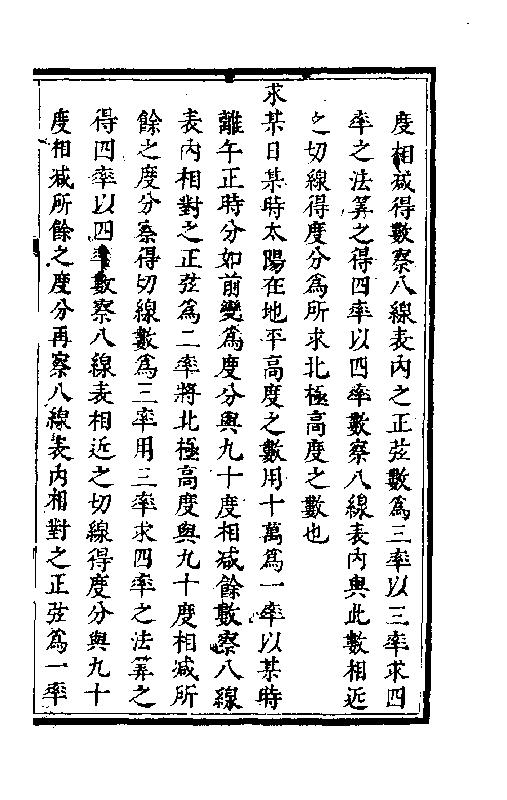 度相減得數察八線表內之正弦數為三率以三率求四
率之法筭之得四率以四率數察八線表內與此數相近
之切線得度分為所求北極高度之數也
求某日某時太陽在地平高度之數用十萬為一率以某時
離午正時分如前變為度分與九十度相减餘數察八線
表內相對之正弦為二率將北極高度與九十度相减所
餘之度分察得切線數為三率用三率求四率之法筭之
得四率以四率數察八線表相近之切線得度分與九十
度相减所餘之度分再察八線表內相對之正弦為一率